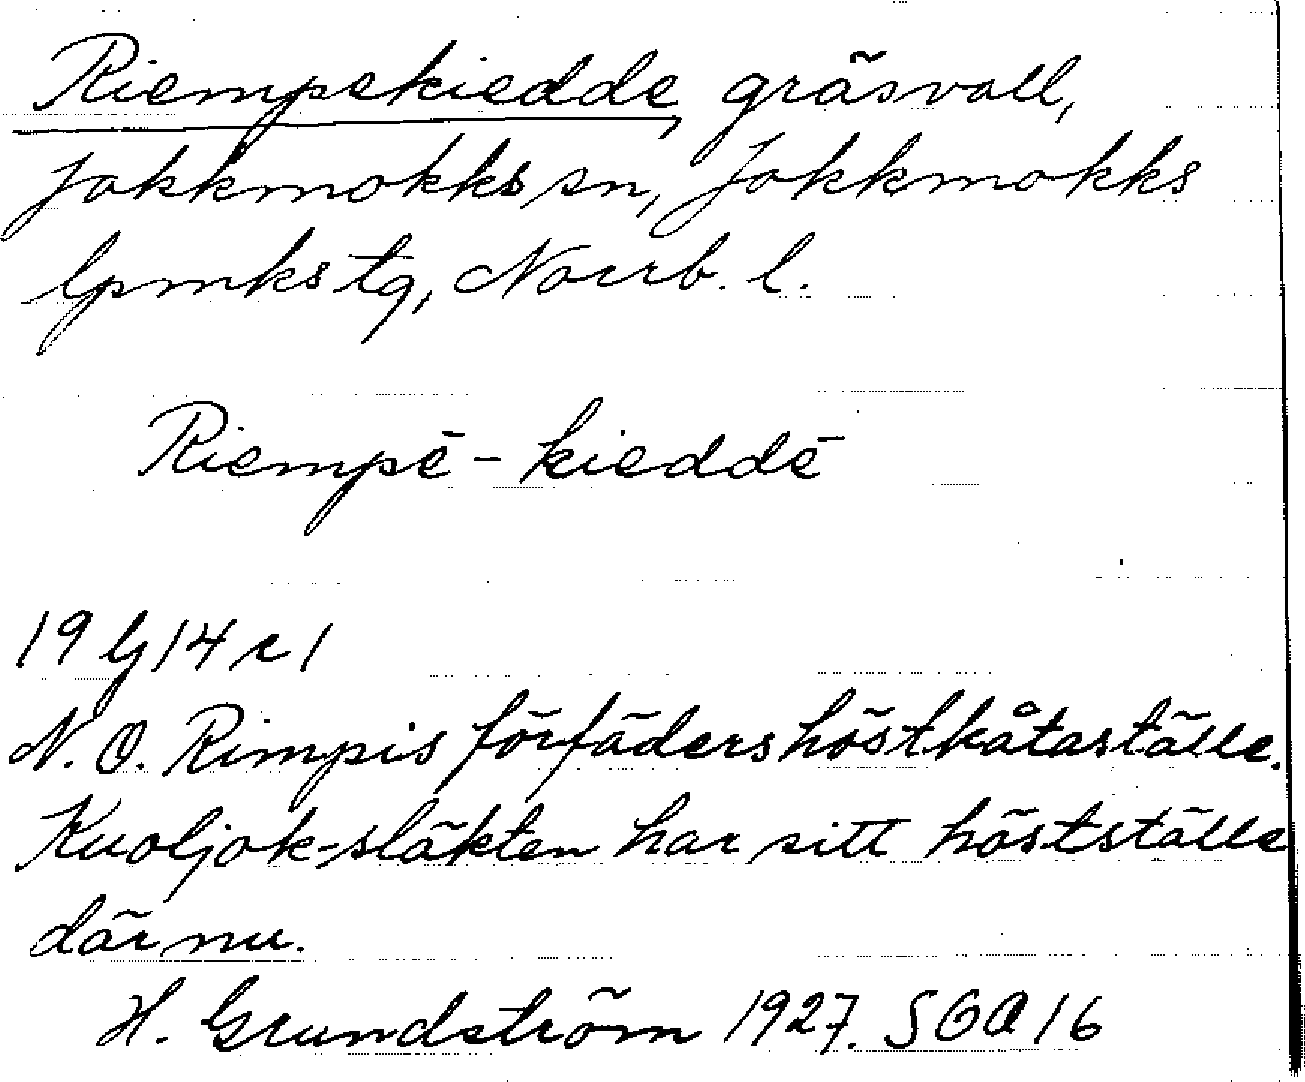 Riempekiedde, gräsvall,
Jokkmokks sn, Jokkmokks
lpmks tg, Norrb. l.
Riempē - kieddē
19 G 14 c 1
N. O. Rimpis förfäders höstkåtaställe.
Kuoljok-släkten har sitt höstställe
där nu.
H. Grundström 1927. SOA 16